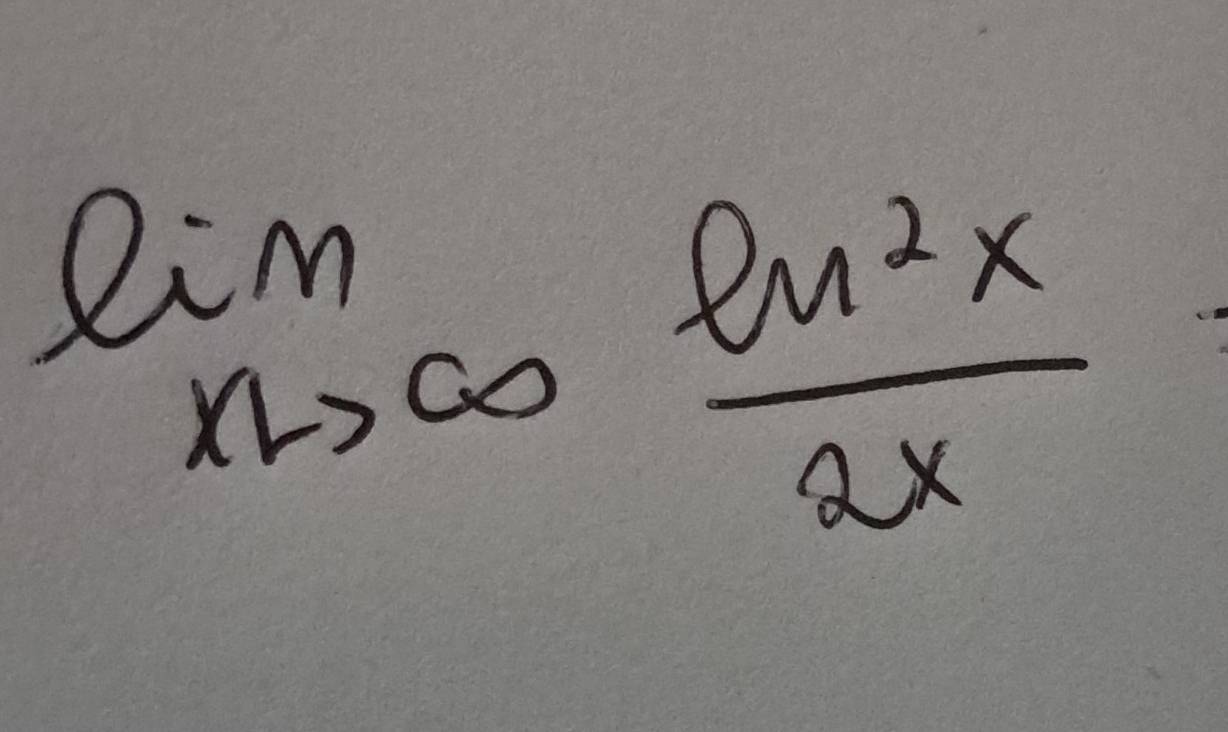 lim ln²x
x→∞ 2x